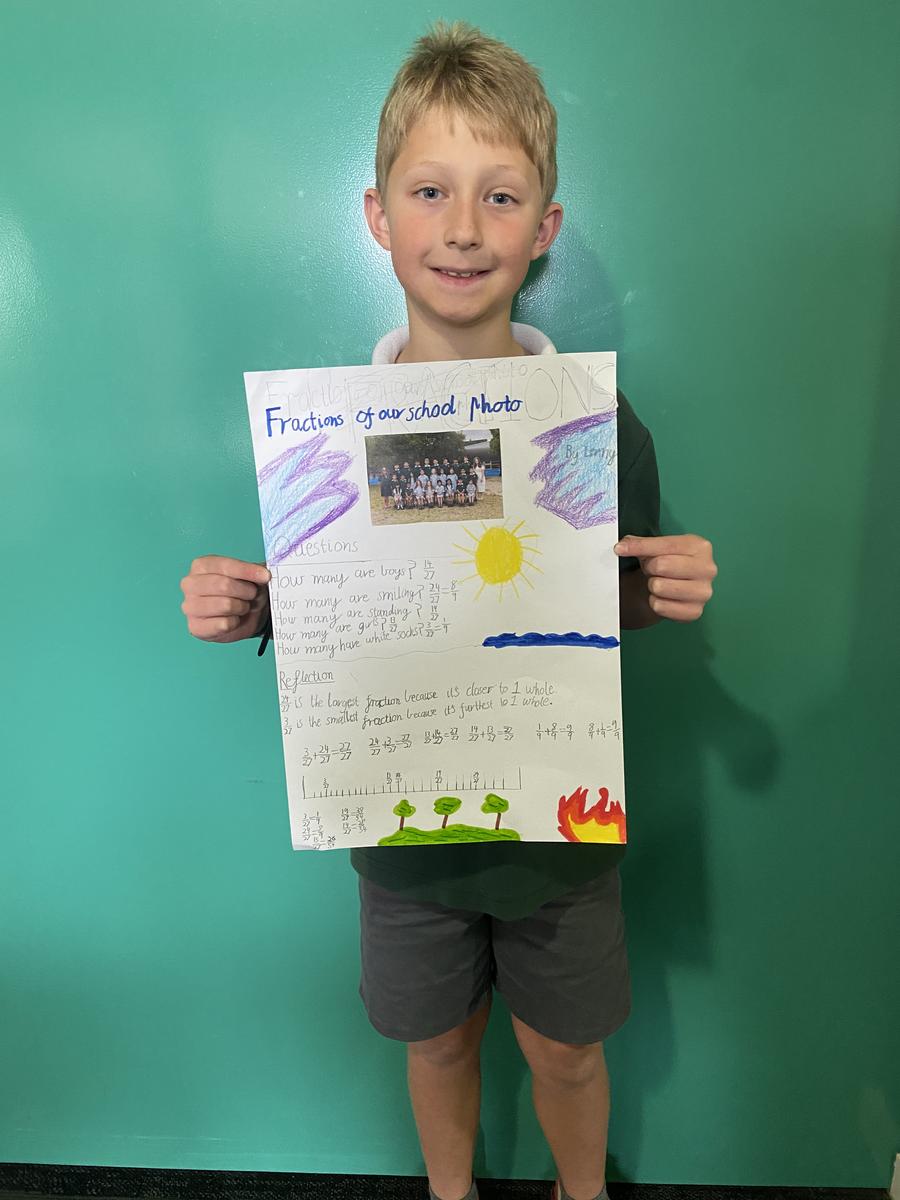 Fractions of our school photo
By Lenny
Questions
How many are boys? 14/27
How many are smiling? 24/27=8/9
How many are standing? 19/27
How many are girls? 13/27
How many have white socks? 3/27=1/9
Reflection
24/27 is the largest fraction because it's closer to 1 whole.
3/27 is the smallest fraction because it's furthest to 1 whole.
3/27+24/27=27/27 24/27+3/27=27/27 13/27+14/27=27/27 14/27+13/27=27/27 1/9+8/9=9/9 8/9+1/9=9/9
3/27 13/27 14/27 19/27
3/27=1/9
24/27=8/9
13/27=26/54